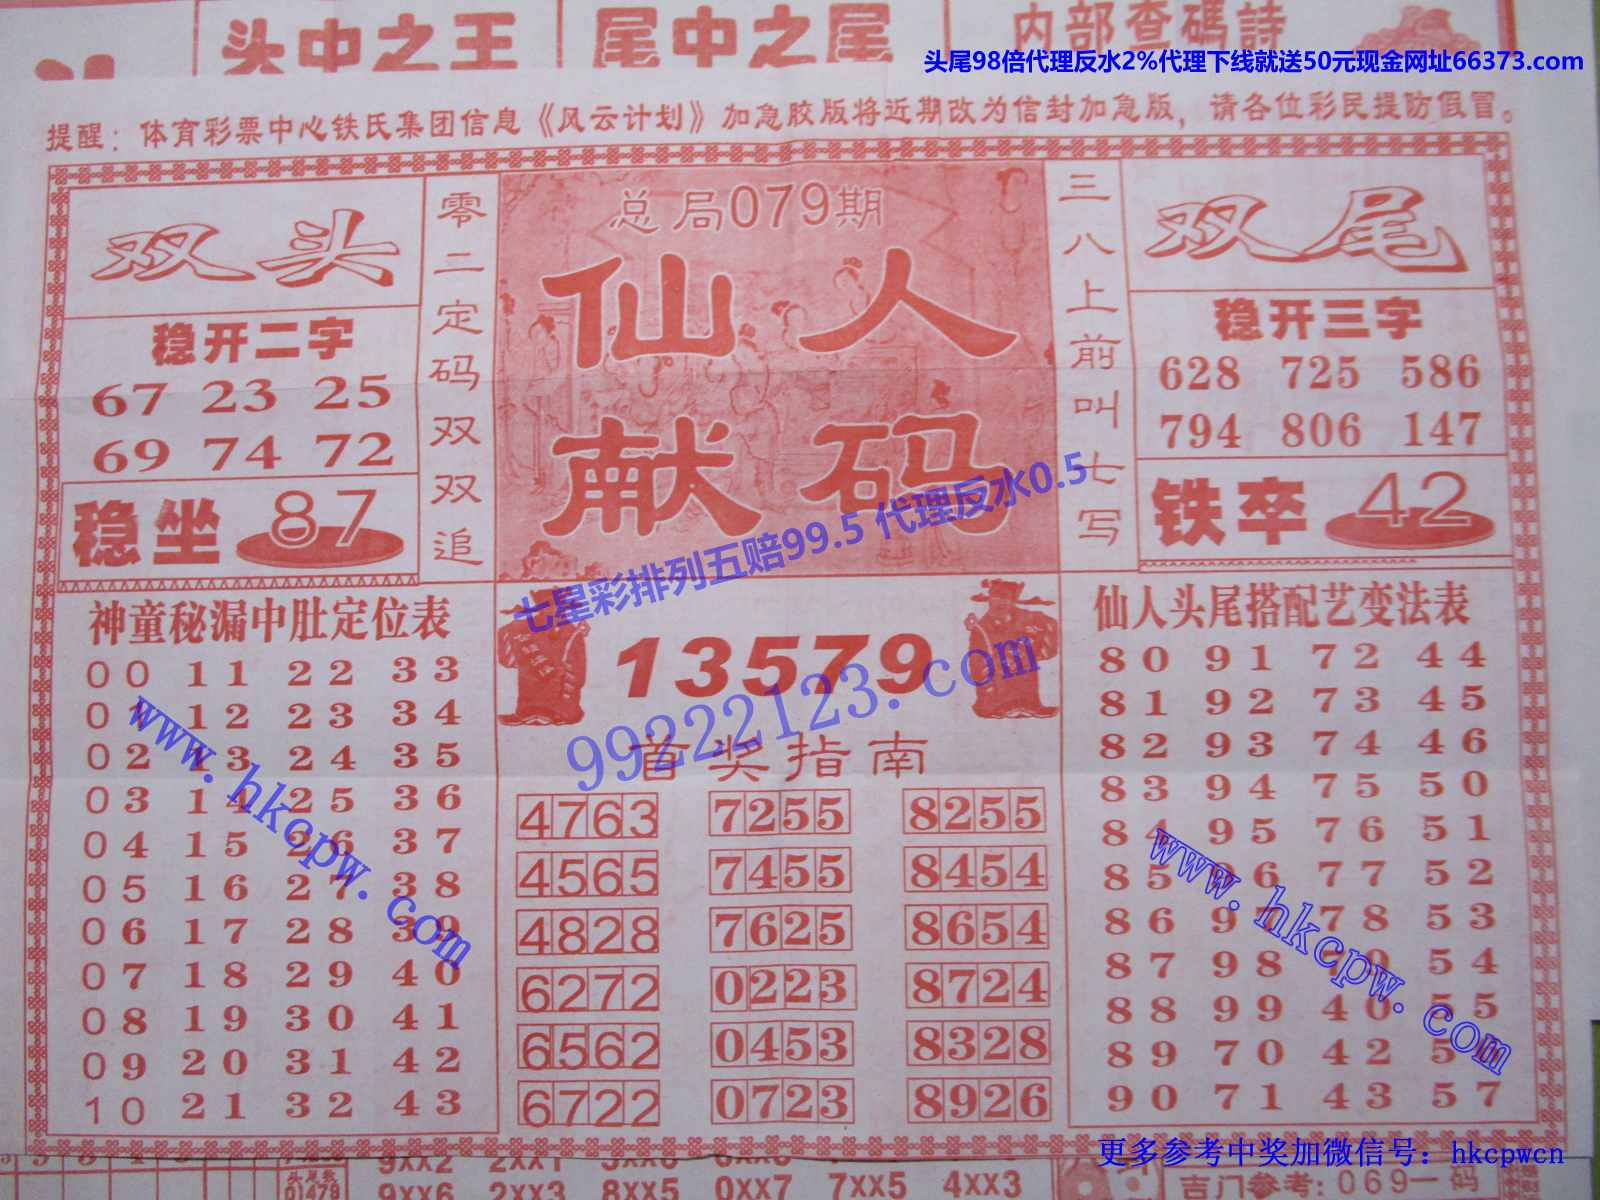 头中之王 尾中之尾 内部查碼詩
头尾98倍代理反水2%代理下线就送50元现金网址66373.com
提醒：体育彩票中心铁氏集团信息《风云计划》加急胶版将近期改为信封加急版，请各位彩民提防假冒。
双头
稳开二字
67 23 25
69 74 72
稳坐 87
零二定码双双追
总局079期
仙人
献码
三八上前叫七写
双尾
稳开三字
628 725 586
794 806 147
铁卒 42
七星彩排列五赔99.5 代理反水0.5
神童秘漏中肚定位表
00 11 22 33
01 12 23 34
02 13 24 35
03 14 25 36
04 15 26 37
05 16 27 38
06 17 28 39
07 18 29 40
08 19 30 41
09 20 31 42
10 21 32 43
www.hkcpw.com
13579
99222123.com
首奖指南
4763 7255 8255
4565 7455 8454
4828 7625 8654
6272 0223 8724
6562 0453 8328
6722 0723 8926
仙人头尾搭配艺变法表
80 91 72 44
81 92 73 45
82 93 74 46
83 94 75 50
84 95 76 51
85 96 77 52
86 97 78 53
87 98 79 54
88 99 40 55
89 70 42 56
90 71 43 57
www.hkcpw.com
更多参考中奖加微信号：hkcpwcn
9xx2 2xx1
01479 9xx6 2xx3 8xx5 0xx7 7xx5 4xx3 吉门参考：069一码